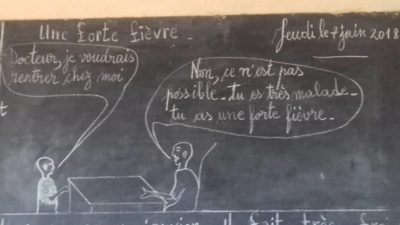 Une forte fièvre.
Jeudi le 7 juin 2018
Docteur, je voudrais
rentrer chez moi
Non, ce n'est pas
possible. tu es très malade.
tu as une forte fièvre.
t
Il fait très